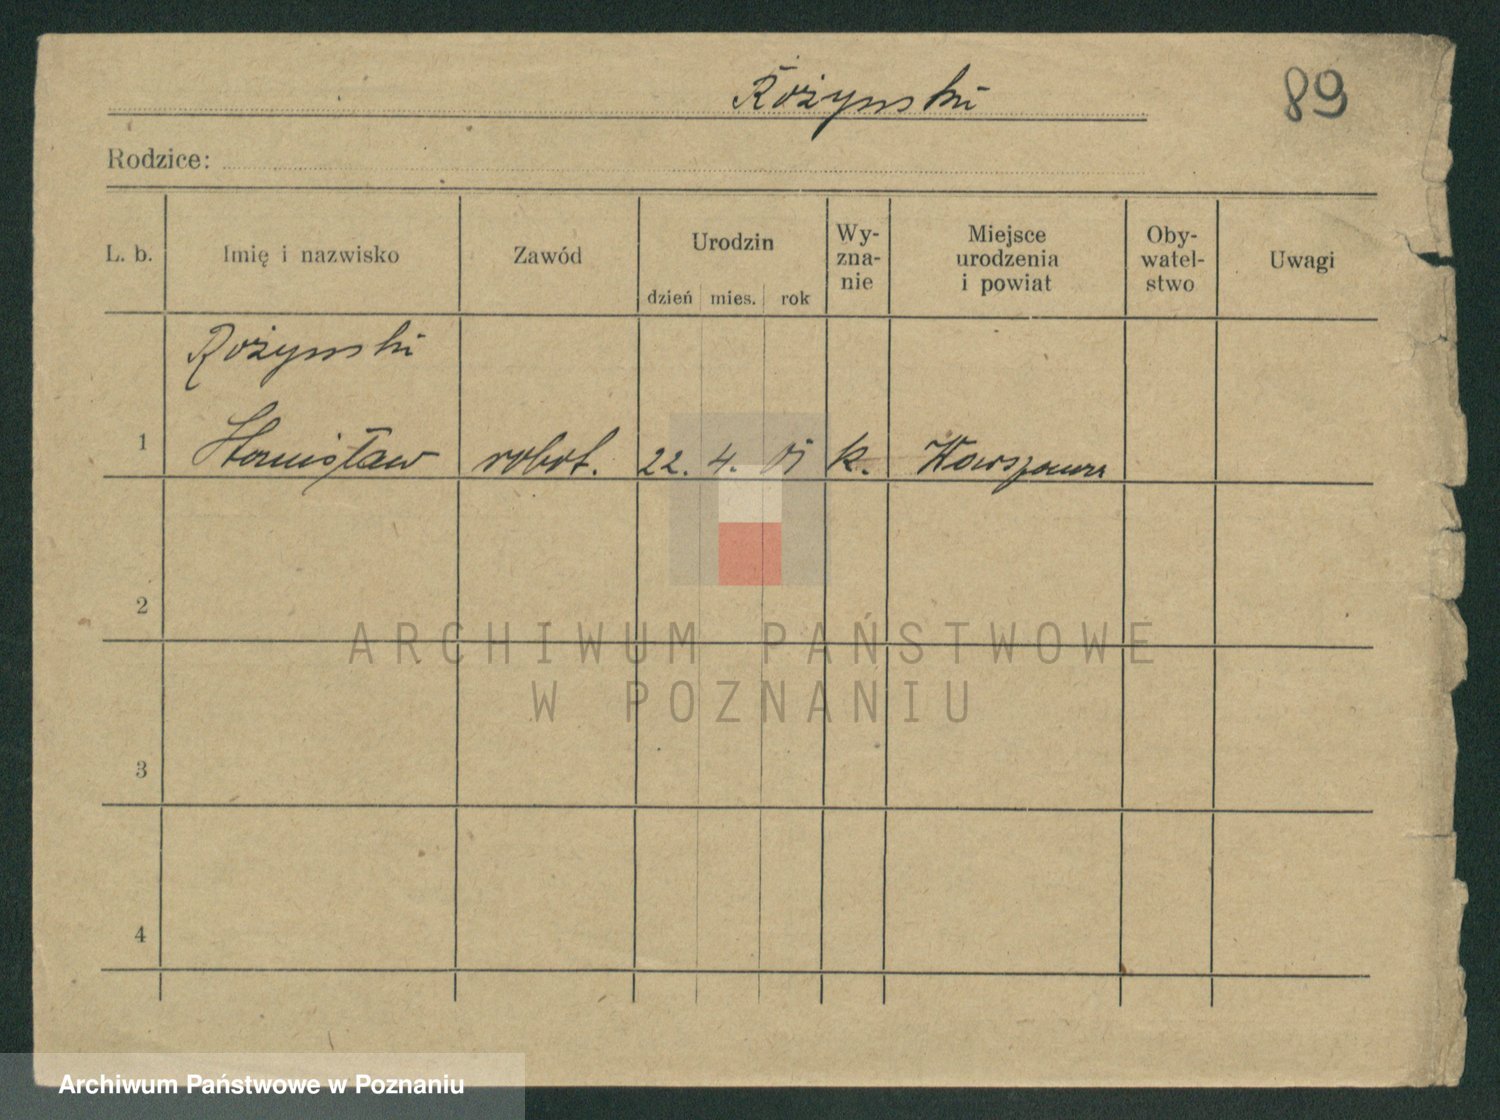 Rożynski
89
Rodzice:
L. b.
Imię i nazwisko
Zawód
Urodzin
dzień mies. rok
Wy-
zna-
nie
Miejsce
urodzenia
i powiat
Oby-
watel-
stwo
Uwagi
Rożynski
1 Stanisław robot. 22. 4. 01 k. Warszawa
2
3
4
ARCHIWUM PAŃSTWOWE
W POZNANIU
Archiwum Państwowe w Poznaniu